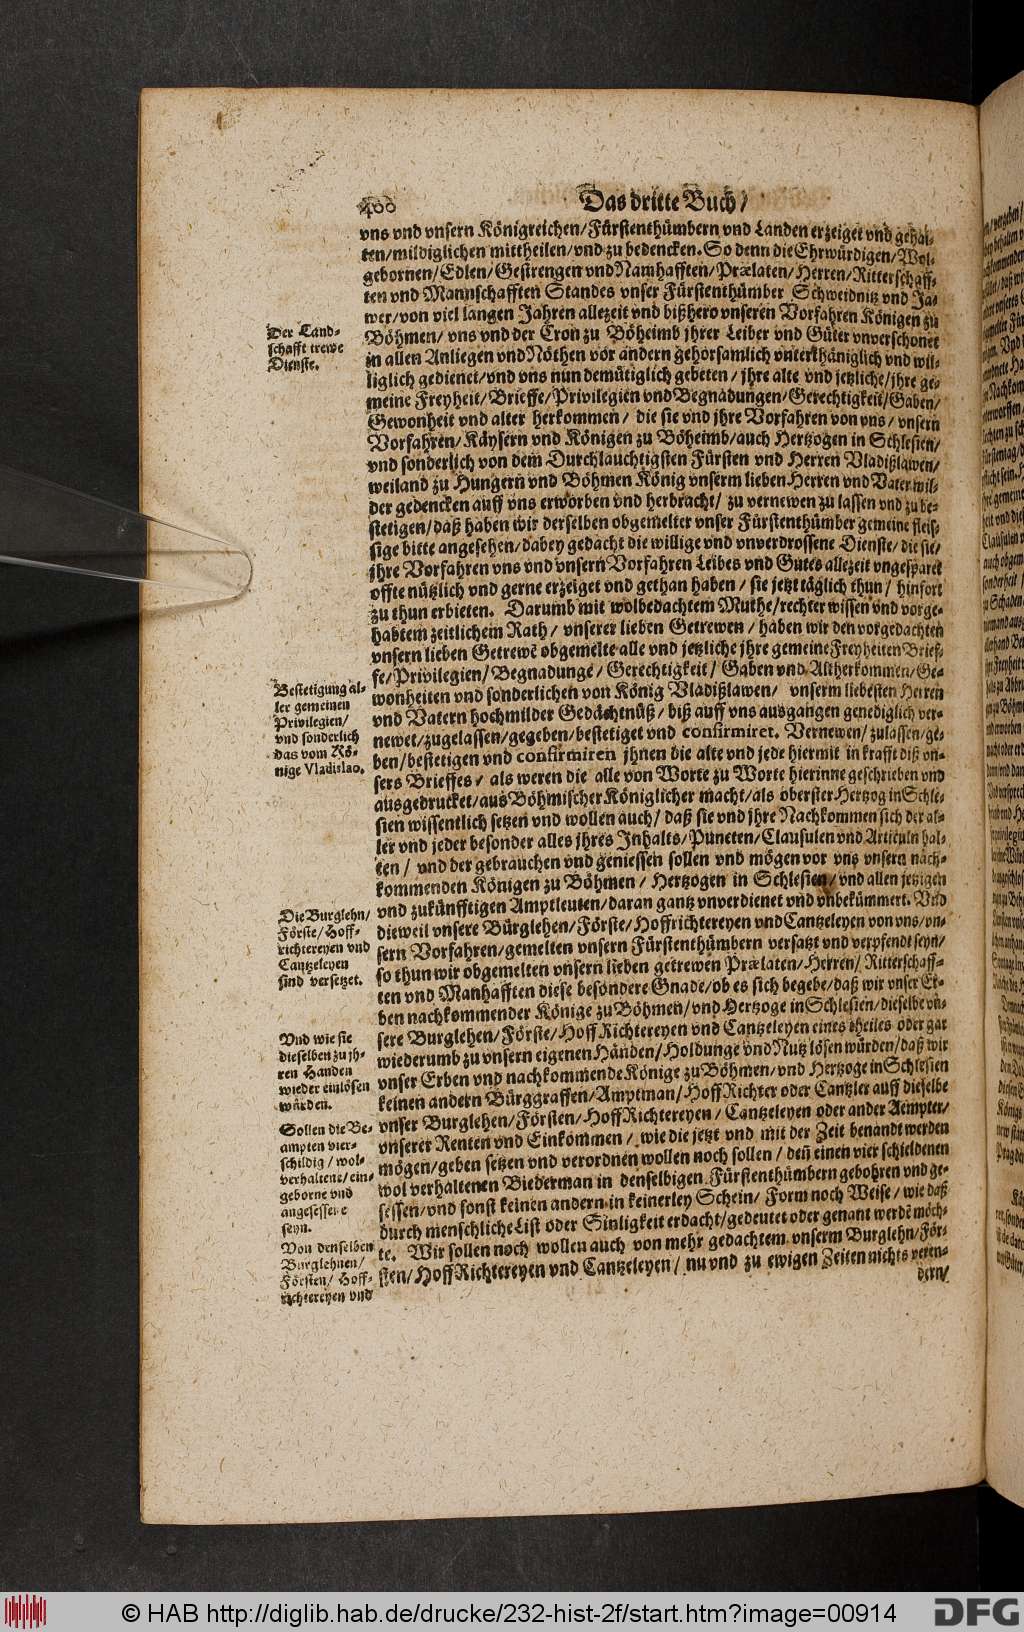 400
Das dritte Buch/
vns vnd vnsern Königreichen/Fürstenthümbern vnd Landen erzeiget vnd gehal-
ten/mildiglichen mittheilen/vnd zu bedencken. So denn die Ehrwürdigen/Wol-
gebornen/Edlen/Gestrengen vnd Namhafften/Prælaten/Herren/Ritterschaff-
ten vnd Mannschafften Standes vnser Fürstenthümber Schweidnitz vnd Ja-
wer/von viel langen Jahren allezeit vnd bißhero vnseren Vorfahren Königen zu
Der Land-
schafft trewe
Dienste.
Böhmen/ vns vnd der Cron zu Böheimb jhrer Leiber vnd Güter vnverschonet
in allen Anliegen vnd Nöthen vor andern gehorsamlich vnterthäniglich vnd wil-
liglich gedienet/vnd vns nun demütiglich gebeten/ jhre alte vnd jetzliche/jhre ge-
meine Freyheit/Brieffe/Privilegien vnd Begnadungen/Gerechtigkeit/Gaben/
Gewonheit vnd alter herkommen/ die sie vnd jhre Vorfahren von vns/ vnsern
Vorfahren/Käysern vnd Königen zu Böheimb/auch Hertzogen in Schlesien/
vnd sonderlich von dem Durchlauchtigsten Fürsten vnd Herren Vladißlawen/
weiland zu Hungern vnd Böhmen König vnserm lieben Herren vnd Vater mil-
der gedencken auff vns erworben vnd herbracht/ zu vernewen zu lassen vnd zu be-
stetigen/daß haben wir derselben obgemelter vnser Fürstenthümber gemeine fleis-
sige bitte angesehen/dabey gedacht die willige vnd vnverdrossene Dienste/die sie/
jhre Vorfahren vns vnd vnsern Vorfahren Leibes vnd Gutes allezeit vngesparet
offte nützlich vnd gerne erzeiget vnd gethan haben/ sie jetzt täglich thun/ hinfort
zu thun erbieten. Darumb mit wolbedachtem Muthe/rechter wissen vnd vorge-
habtem zeitlichem Rath/ vnserer lieben Getrewen/ haben wir den vorgedachten
vnsern lieben Getrewẽ obgemelte alle vnd jetzliche jhre gemeine Freyheiten Brief-
fe/Privilegien/Begnadunge/Gerechtigkeit/ Gaben vnd Altherkommen/Ge-
Bestetigung al-
ler gemeinen
Privilegien/
vnd sonderlich
das vom Kö-
nige Vladislao.
wonheiten vnd sonderlichen von König Vladißlawen/ vnserm liebesten Herren
vnd Vatern hochmilder Gedächtnüß/ biß auff vns ausgangen genediglich ver-
newet/zugelassen/gegeben/bestetiget vnd confirmiret. Vernewen/zulassen/ge-
ben/bestetigen vnd confirmiren jhnen die alte vnd jede hiermit in krafft diß vn-
sers Brieffes/ als weren die alle von Worte zu Worte hierinne geschrieben vnd
ausgedrucket/aus Böhmischer Königlicher macht/als oberster Hertzog in Schle-
sien wissentlich setzen vnd wollen auch/ daß sie vnd jhre Nachkommen sich der al-
ler vnd jeder besonder alles jhres Inhalts/Puncten/Clausulen vnd Articuln hal-
ten/ vnd der gebrauchen vnd geniessen sollen vnd mögen vor vns vnsern nach-
kommenden Königen zu Böhmen/ Hertzogen in Schlesien/vnd allen jetzigen
vnd zukünfftigen Amptleuten/daran gantz vnverdienet vnd vnbekümmert. Vnd
Die Burglehn/
Förste/ Hoff-
richtereyen vnd
Cantzeleyen
sind versetzet.
dieweil vnsere Bürglehen/Förste/Hoffrichtereyen vnd Cantzeleyen von vns/vn-
sern Vorfahren/gemelten vnsern Fürstenthümbern versatzt vnd verpfendt seyn/
so thun wir obgemelten vnsern lieben getrewen Prælaten/Herren/ Ritterschaff-
ten vnd Manhafften diese besondere Gnade/ob es sich begebe/daß wir vnser Er-
ben nachkommender Könige zu Böhmen/vnd Hertzoge in Schlesien/dieselbe vn-
Vnd wie sie
dieselben zu jh-
ren Handen
wieder einlösen
würden.
sere Burglehen/Förste/Hoff Richtereyen vnd Cantzeleyen eines theiles oder gar
wiederumb zu vnsern eigenen Händen/Holdunge vnd Nutz lösen würden/daß wir
vnser Erben vnd nachkommende Könige zu Böhmen/vnd Hertzoge in Schlesien
keinen andern Bürggraffen/Amptman/Hoff Richter oder Cantzler auff dieselbe
vnser Burglehen/Försten/Hoff Richtereyen/ Cantzeleyen oder ander Aempter/
Sollen die Be-
ampten vier-
schildig/ wol-
verhaltene/ein-
geborne vnd
angesessene
seyn.
vnserer Renten vnd Einkommen/ wie die jetzt vnd mit der Zeit benandt werden
mögen/geben setzen vnd verordnen wollen noch sollen/ deñ einen vier schieldenen
wol verhaltenen Biederman in denselbigen Fürstenthümbern gebohren vnd ge-
sessen/vnd sonst keinen andern in keinerley Schein/ Form noch Weise/ wie daß
durch menschliche List oder Sinligkeit erdacht/gedeutet oder genant werdẽ möch-
Von denselben
Burglehnen/
Försten/ Hoff-
richtereyen vnd
te. Wir sollen noch wollen auch von mehr gedachtem vnserm Burglehn/För-
sten/Hoff Richtereyen vnd Cantzeleyen/ nu vnd zu ewigen Zeiten nichts veren-
dern/
© HAB http://diglib.hab.de/drucke/232-hist-2f/start.htm?image=00914
DFG